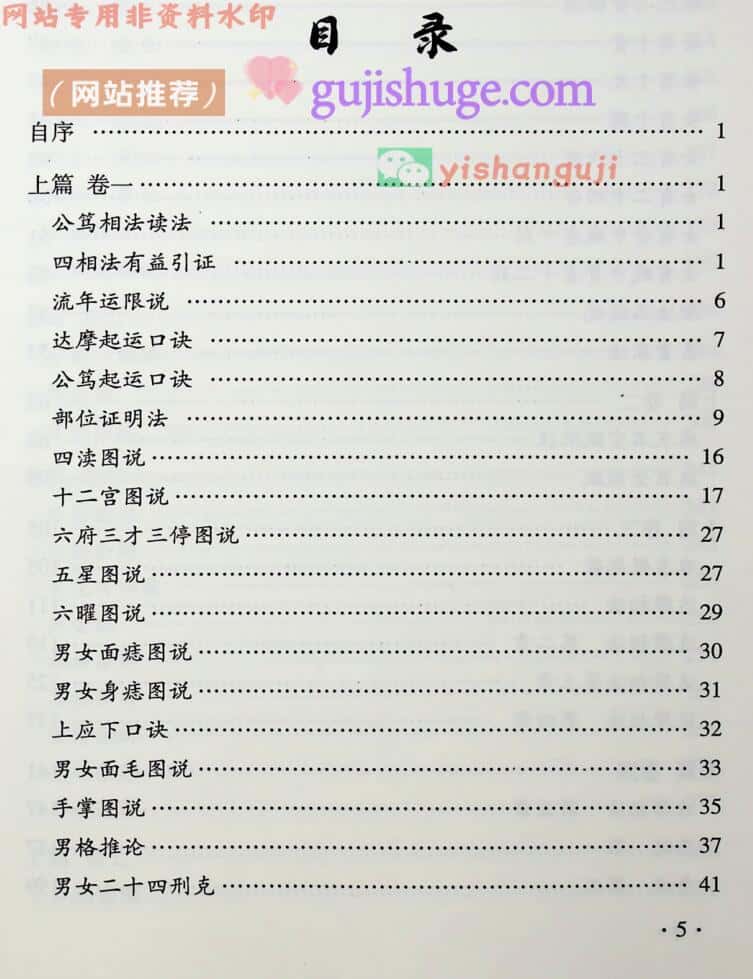 网站专用非资料水印
目 录
（网站推荐） gujishuge.com
自序 …… 1
yishanguji
上篇 卷一 …… 1
公笃相法读法 …… 1
四相法有益引证 …… 1
流年运限说 …… 6
达摩起运口诀 …… 7
公笃起运口诀 …… 8
部位证明法 …… 9
四渎图说 …… 16
十二宫图说 …… 17
六府三才三停图说 …… 27
五星图说 …… 27
六曜图说 …… 29
男女面痣图说 …… 30
男女身痣图说 …… 31
上应下口诀 …… 32
男女面毛图说 …… 33
手掌图说 …… 35
男格推论 …… 37
男女二十四刑克 …… 41
·5·